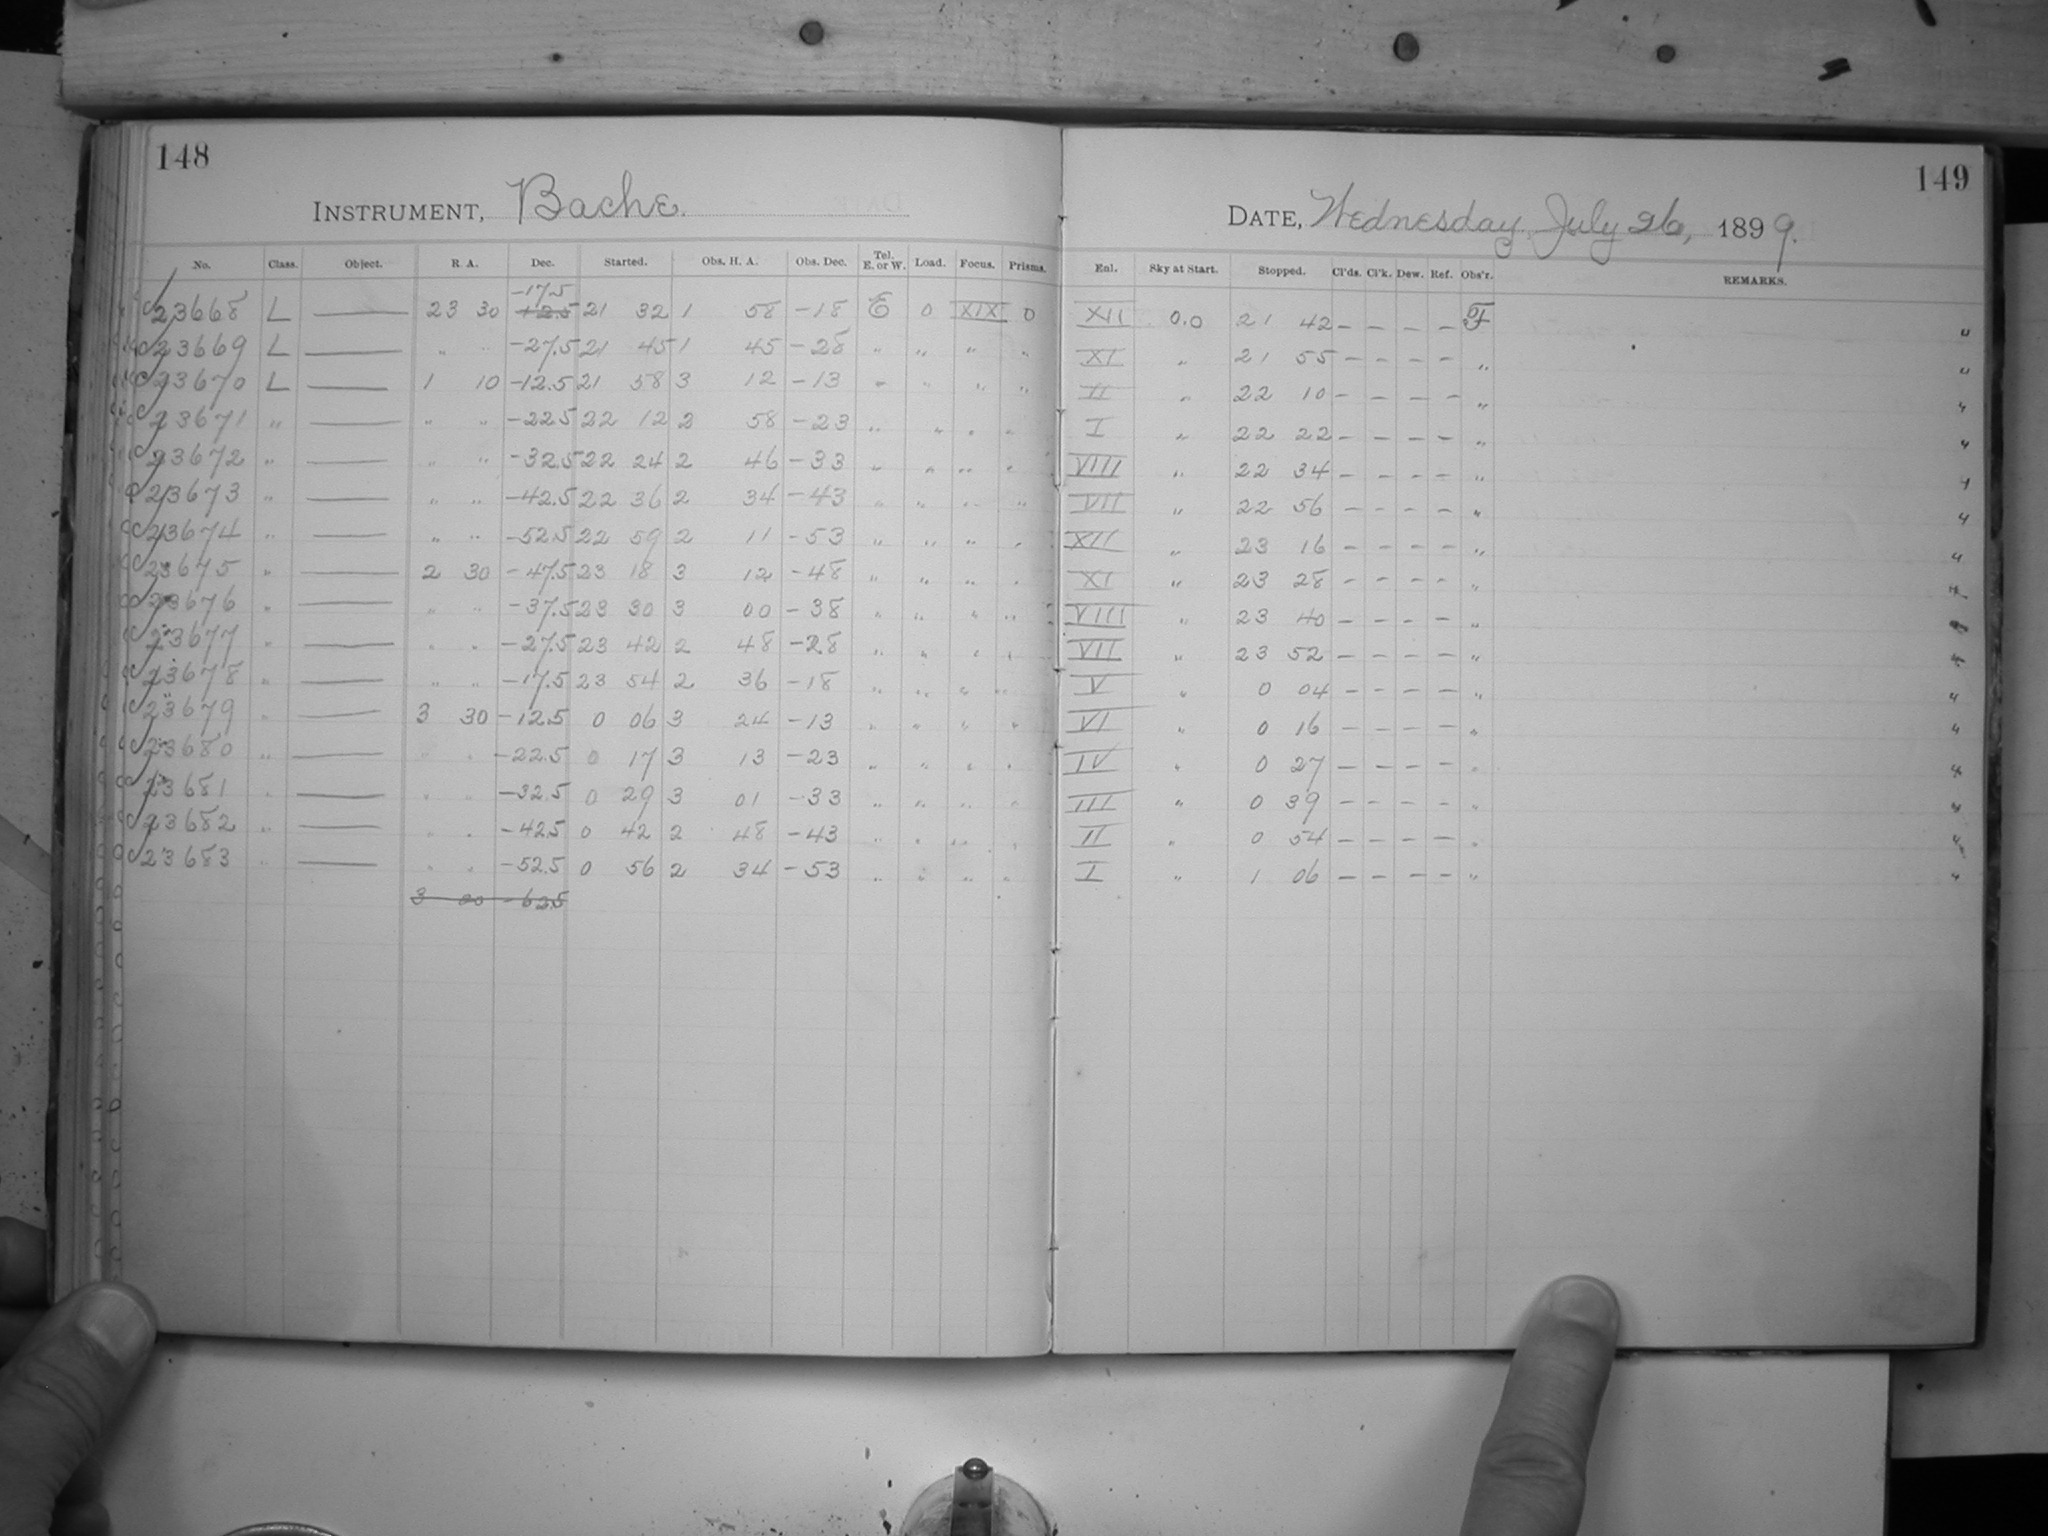 148
149
INSTRUMENT, Bache.
DATE, Wednesday, July 26, 1899.
No. Class. Object. R. A. Dec. Started. Obs. H. A. Obs. Dec. Tel. E. or W. Load. Focus. Prisms. Enl. Sky at Start. Stopped. Cl'ds. Cl'k. Dew. Ref. Obs'r. REMARKS.
-17.5
C23668 L —— 23 30 -12.5 21 32 1 58 -18 E 0 XIX 0 XII 0.0 21 42 — — — — F "
C23669 L —— " " -27.5 21 45 1 45 -28 " " " " XI " 21 55 — — — — " "
C23670 L —— 1 10 -12.5 21 58 3 12 -13 " " " " II " 22 10 — — — — " "
C23671 " —— " " -22.5 22 12 2 58 -23 " " " " I " 22 22 — — — — " "
C23672 " —— " " -32.5 22 24 2 46 -33 " " " " VIII " 22 34 — — — — " "
C23673 " —— " " -42.5 22 36 2 34 -43 " " " " VII " 22 56 — — — — " "
C23674 " —— " " -52.5 22 59 2 11 -53 " " " " XII " 23 16 — — — — " "
C23675 " —— 2 30 -47.5 23 18 3 12 -48 " " " " XI " 23 28 — — — — " "
C23676 " —— " " -37.5 23 30 3 00 -38 " " " " VIII " 23 40 — — — — " "
C23677 " —— " " -27.5 23 42 2 48 -28 " " " " VII " 23 52 — — — — " "
C23678 " —— " " -17.5 23 54 2 36 -18 " " " " V " 0 04 — — — — " "
C23679 " —— 3 30 -12.5 0 06 3 24 -13 " " " " VI " 0 16 — — — — " "
C23680 " —— " " -22.5 0 17 3 13 -23 " " " " IV " 0 27 — — — — " "
C23681 " —— " " -32.5 0 29 3 01 -33 " " " " III " 0 39 — — — — " "
C23682 " —— " " -42.5 0 42 2 48 -43 " " " " II " 0 54 — — — — " "
C23683 " —— " " -52.5 0 56 2 34 -53 " " " " I " 1 06 — — — — " "
3 00 -62.5